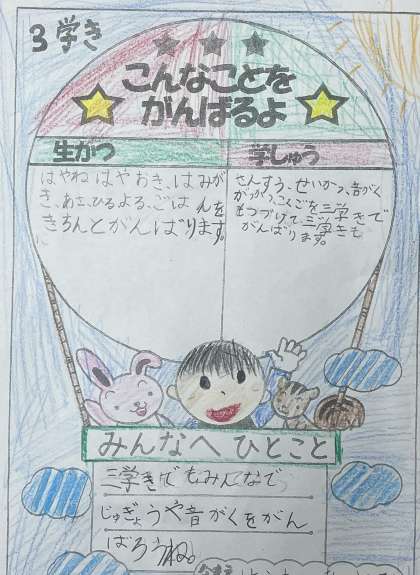 3学き
こんなことを
がんばるよ
生かつ
はやねはやおき、はみが
き、あさ、ひるよる、ごはんを
きちんとがんばります。
学しゅう
さんすう、せいかつ、音がく
がっかつ、こくごを三学きで
もつづけて三学きも
がんばります。
みんなへ ひとこと
三学きでもみんなで
じゅぎょうや音がくをがん
ばろうね。
なまえ